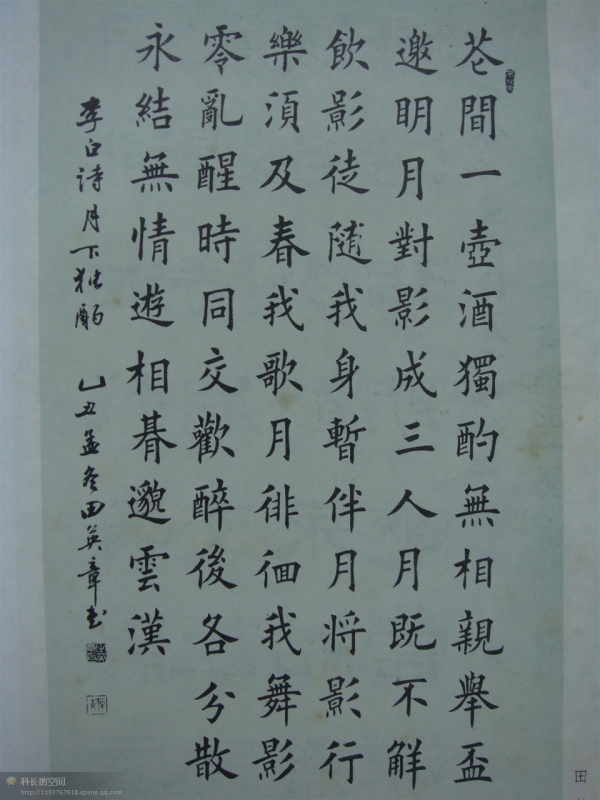 花間一壺酒獨酌無相親舉盃
邀明月對影成三人月既不解
飲影徒隨我身暫伴月将影行
樂須及春我歌月徘徊我舞影
零亂醒時同交歡醉後各分散
永結無情遊相朞邈雲漢
李白诗月下独酌 乙丑孟冬田英章书
田
科长的空间
http://1193767618.qzone.qq.com